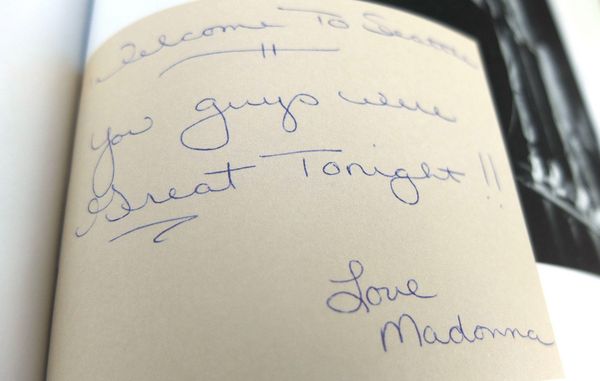 Welcome To Seattle
You guys were
Great Tonight !!
Love
Madonna